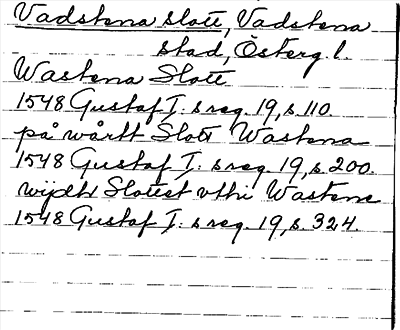 Vadstena slott, Vadstena
stad, Österg l.
Wastena Slott
1548 Gustaf I:s reg. 19, s. 110.
på wårtt Slott Wastena
1548 Gustaf I:s reg. 19, s. 200.
wijdtt Slottet vthi Wastene
1548 Gustaf I:s reg. 19, s. 324.